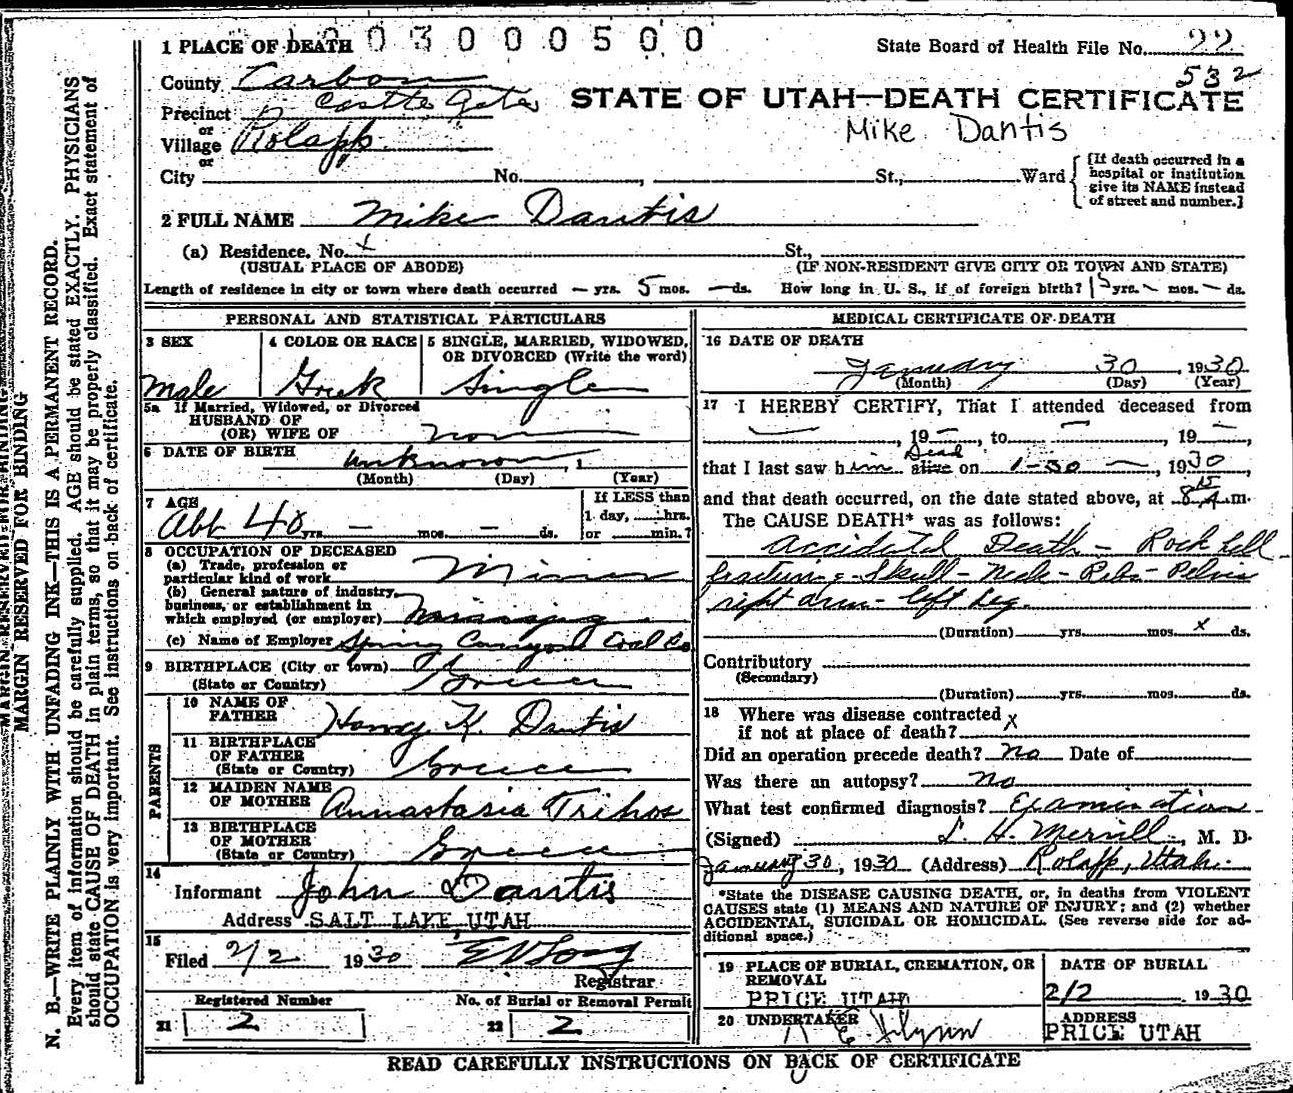 1 PLACE OF DEATH 0 3 0 0 0 5 0 0
State Board of Health File No. 22
532
County Carbon
Precinct Castle Gate
or
Village Rolapp
or
City No. , St., Ward
STATE OF UTAH—DEATH CERTIFICATE
Mike Dantis
[If death occurred in a
hospital or institution
give its NAME instead
of street and number.]
2 FULL NAME Mike Dantis
(a) Residence. No. x St.,
(USUAL PLACE OF ABODE) (IF NON-RESIDENT GIVE CITY OR TOWN AND STATE)
Length of residence in city or town where death occurred — yrs. 5 mos. — ds. How long in U. S., if of foreign birth? 15 yrs. — mos. — ds.
PERSONAL AND STATISTICAL PARTICULARS
3 SEX
Male
4 COLOR OR RACE
Greek
5 SINGLE, MARRIED, WIDOWED,
OR DIVORCED (Write the word)
Single
5a If Married, Widowed, or Divorced
HUSBAND OF
(OR) WIFE OF
6 DATE OF BIRTH unknown , 1
(Month) (Day) (Year)
7 AGE
Abt 40 yrs. — mos. — ds.
If LESS than
1 day, hrs.
or min.?
8 OCCUPATION OF DECEASED
(a) Trade, profession or
particular kind of work Miner
(b) General nature of industry,
business, or establishment in
which employed (or employer) Mining
(c) Name of Employer Spring Canyon Coal Co
9 BIRTHPLACE (City or town)
(State or Country) Greece
PARENTS
10 NAME OF
FATHER Harry K. Dantis
11 BIRTHPLACE
OF FATHER
(State or Country) Greece
12 MAIDEN NAME
OF MOTHER Annastasia Trihos
13 BIRTHPLACE
OF MOTHER
(State or Country) Greece
14
Informant John Dantis
Address SALT LAKE, UTAH
15
Filed 2/2 1930
Registrar
Registered Number
21 2
No. of Burial or Removal Permit
22 2
MEDICAL CERTIFICATE OF DEATH
16 DATE OF DEATH
January 30, 1930
(Month) (Day) (Year)
17 I HEREBY CERTIFY, That I attended deceased from
— , 19 — , to — , 19 — ,
Dead
that I last saw him alive on 1-30 — , 1930,
and that death occurred, on the date stated above, at 8 15 A.m.
The CAUSE DEATH* was as follows:
Accidental Death - Rock fell
fracturing - Skull - Neck - Ribs - Pelvis
right arm - left leg.
(Duration) yrs. mos. x ds.
Contributory
(Secondary)
(Duration) yrs. mos. ds.
18 Where was disease contracted
if not at place of death? x
Did an operation precede death? No Date of
Was there an autopsy? no
What test confirmed diagnosis? Examination
(Signed) L. H. Merrill, M. D.
January 30, 1930 (Address) Rolapp, Utah.
*State the DISEASE CAUSING DEATH, or, in deaths from VIOLENT
CAUSES state (1) MEANS AND NATURE OF INJURY; and (2) whether
ACCIDENTAL, SUICIDAL OR HOMICIDAL. (See reverse side for ad-
ditional space.)
19 PLACE OF BURIAL, CREMATION, OR
REMOVAL
PRICE UTAH
DATE OF BURIAL
2/2 1930
20 UNDERTAKER
Flynn
ADDRESS
PRICE UTAH
READ CAREFULLY INSTRUCTIONS ON BACK OF CERTIFICATE
MARGIN RESERVED FOR BINDING
N. B.—WRITE PLAINLY WITH UNFADING INK—THIS IS A PERMANENT RECORD.
Every item of information should be carefully supplied. AGE should be stated EXACTLY. PHYSICIANS
should state CAUSE OF DEATH in plain terms, so that it may be properly classified. Exact statement of
OCCUPATION is very important. See instructions on back of certificate.